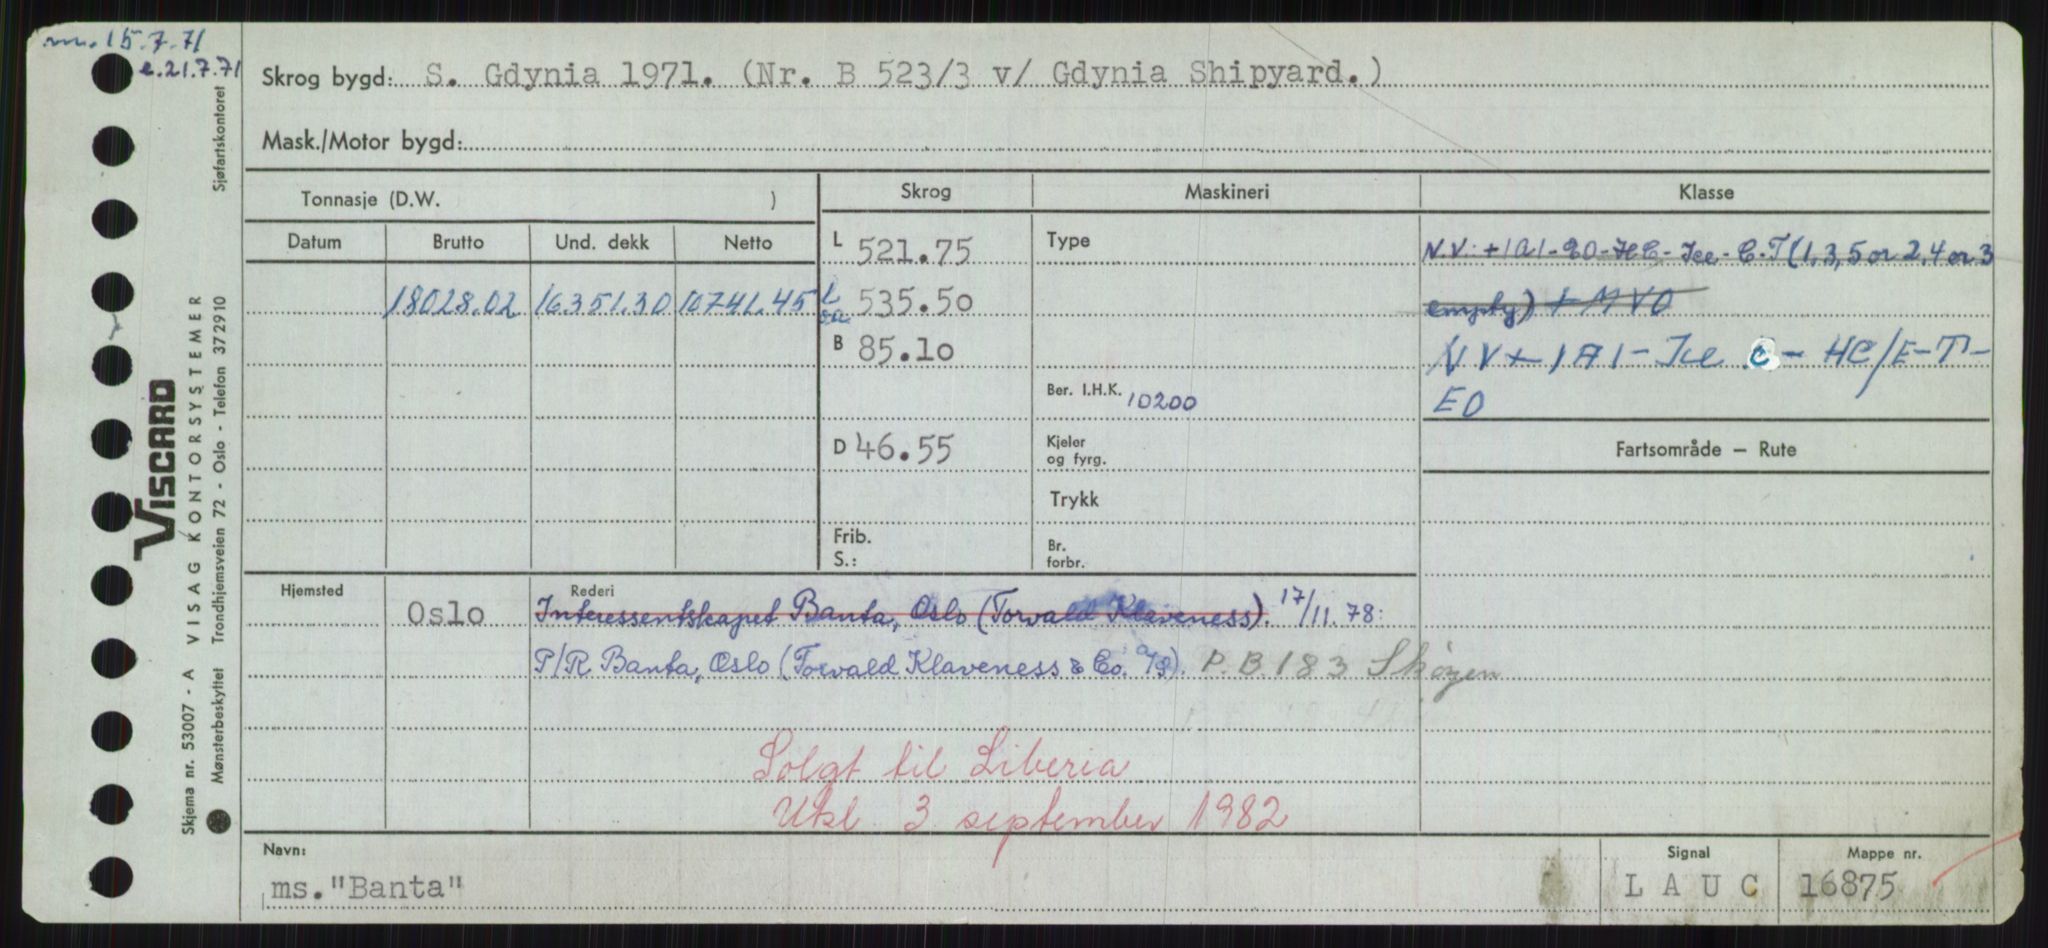 m. 15.7.71
e. 21.7.71
Skrog bygd: S. Gdynia 1971. (Nr. B 523/3 v/ Gdynia Shipyard.)
Mask./Motor bygd:
Tonnasje (D.W. )
Skrog Maskineri Klasse
Datum Brutto Und. dekk Netto
L 521.75 Type N.V. +1A1-EO-HC-Ice-C-T(1,3,5 or 2,4 or 3
18028.02 16351.30 10741.45 L oa 535.50 empty) + MVO
B 85.10 NV+1A1-Ice C - HC/E-T-
Ber. I.H.K. 10200 EO
D 46.55 Kjeler
og fyrg.
Fartsområde — Rute
Trykk
Frib.
S.:
Br.
forbr.
Hjemsted Rederi
Oslo Interessentskapet Banta, Oslo (Torvald Klaveness). 17/11.78:
P/R Banta, Oslo (Torvald Klaveness & Co. a/s). P.B. 183 Skøyen
Solgt til Liberia
Utkl 3 september 1982
Navn: Signal Mappe nr.
ms."Banta" L A U C 16875
VISCARD
Skjema nr. 53007 - A VISAG KONTORSYSTEMER
Mønsterbeskyttet Trondhjemsveien 72 - Oslo - Telefon 372910 Sjøfartskontoret